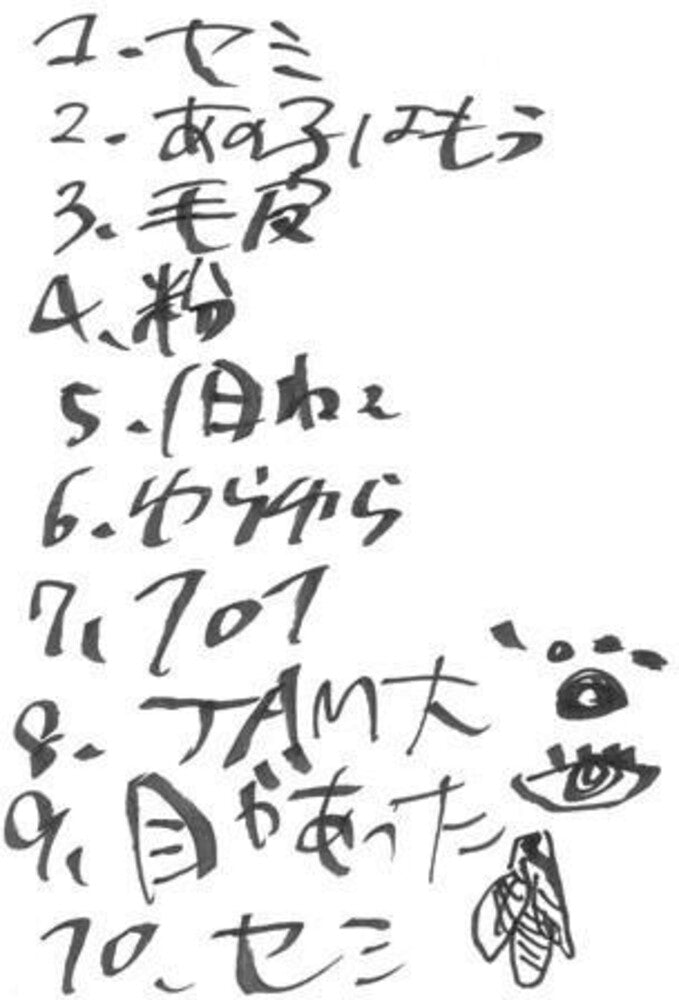 1.セミ
2.あの子はもう
3、毛皮
4、粉
5.1日ねぇ
6.ゆらゆら
7、
8.JAM大
9、目があった
10、セミ